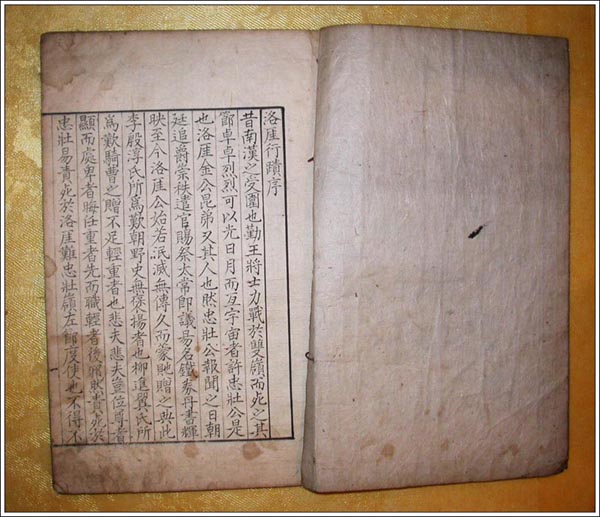 洛厓行蹟序
昔南漢之受圍也勤王將士力戰於雙嶺而死之其
節卓卓烈烈可以光日月而亙宇宙者許忠壯公是
也洛厓金公昆弟又其人也然忠壯公報聞之日朝
廷追爵崇秩遣官賜祭太常卽議易名鐵券丹書輝
映至今洛厓公始若泯滅無傳久而蒙貤贈之典此
李殷淳氏所爲歎朝野史無褒揚者也柳進翼氏所
爲歎騎曹之贈不足輕重者也悲夫悲夫豈位尊者
顯而處卑者晦任重者先而職輕者後耶然責死於
忠壯易責死於洛厓難忠壯嶺左節度使也不得不